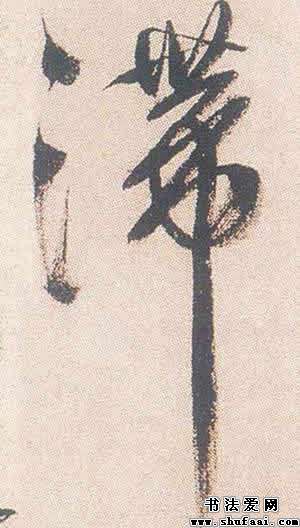 滞
书法爱网
www.shufaai.com